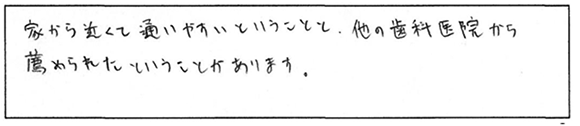 家から近くて通いやすいということと、他の歯科医院から
薦められたということがあります。